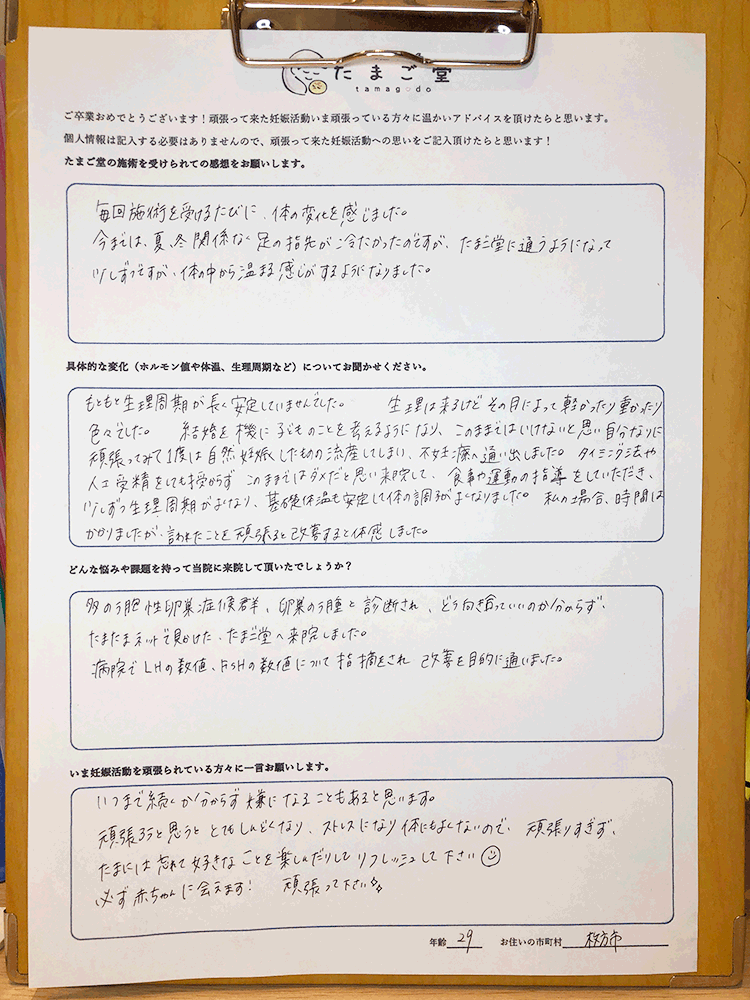 たまご堂
tamagodo
ご卒業おめでとうございます！頑張って来た妊娠活動いま頑張っている方々に温かいアドバイスを頂けたらと思います。
個人情報は記入する必要はありませんので、頑張って来た妊娠活動への思いをご記入頂けたらと思います！
たまご堂の施術を受けられての感想をお願いします。
毎回施術を受けるたびに、体の変化を感じました。
今までは、夏、冬関係なく足の指先が冷たかったのですが、たまご堂に通うようになって
少しずつですが、体の中から温まる感じがするようになりました。
具体的な変化（ホルモン値や体温、生理周期など）についてお聞かせください。
もともと生理周期が長く安定していませんでした。 生理は来るけどその月によって軽かったり重かったり
色々でした。 結婚を機に子どものことを考えるようになり、このままではいけないと思い自分なりに
頑張ってみて1度は自然妊娠したものの流産してしまい、不妊治療へ通い出しました。タイミング法や
人工受精をしても授からず このままではダメだと思い来院して、食事や運動の指導をしていただき、
少しずつ生理周期がよくなり、基礎体温も安定して体の調子がよくなりました。 私の場合、時間は
かかりましたが、言われたことを頑張ると改善すると体感しました。
どんな悩みや課題を持って当院に来院して頂いたでしょうか？
多のう胞性卵巣症候群、卵巣のう腫と診断され、どう向き合っていいのか分からず、
たまたまネットで見かけた、たまご堂へ来院しました。
病院でLHの数値、FSHの数値について指摘をされ 改善を目的に通いました。
いま妊娠活動を頑張られている方々に一言お願いします。
いつまで続くか分からず嫌になることもあると思います。
頑張ろうと思うと とてもしんどくなり、ストレスになり体にもよくないので、頑張りすぎず、
たまには忘れて好きなことを楽しんだりして リフレッシュして下さい
必ず赤ちゃんに会えます！ 頑張って下さい
年齢 29 お住いの市町村 枚方市